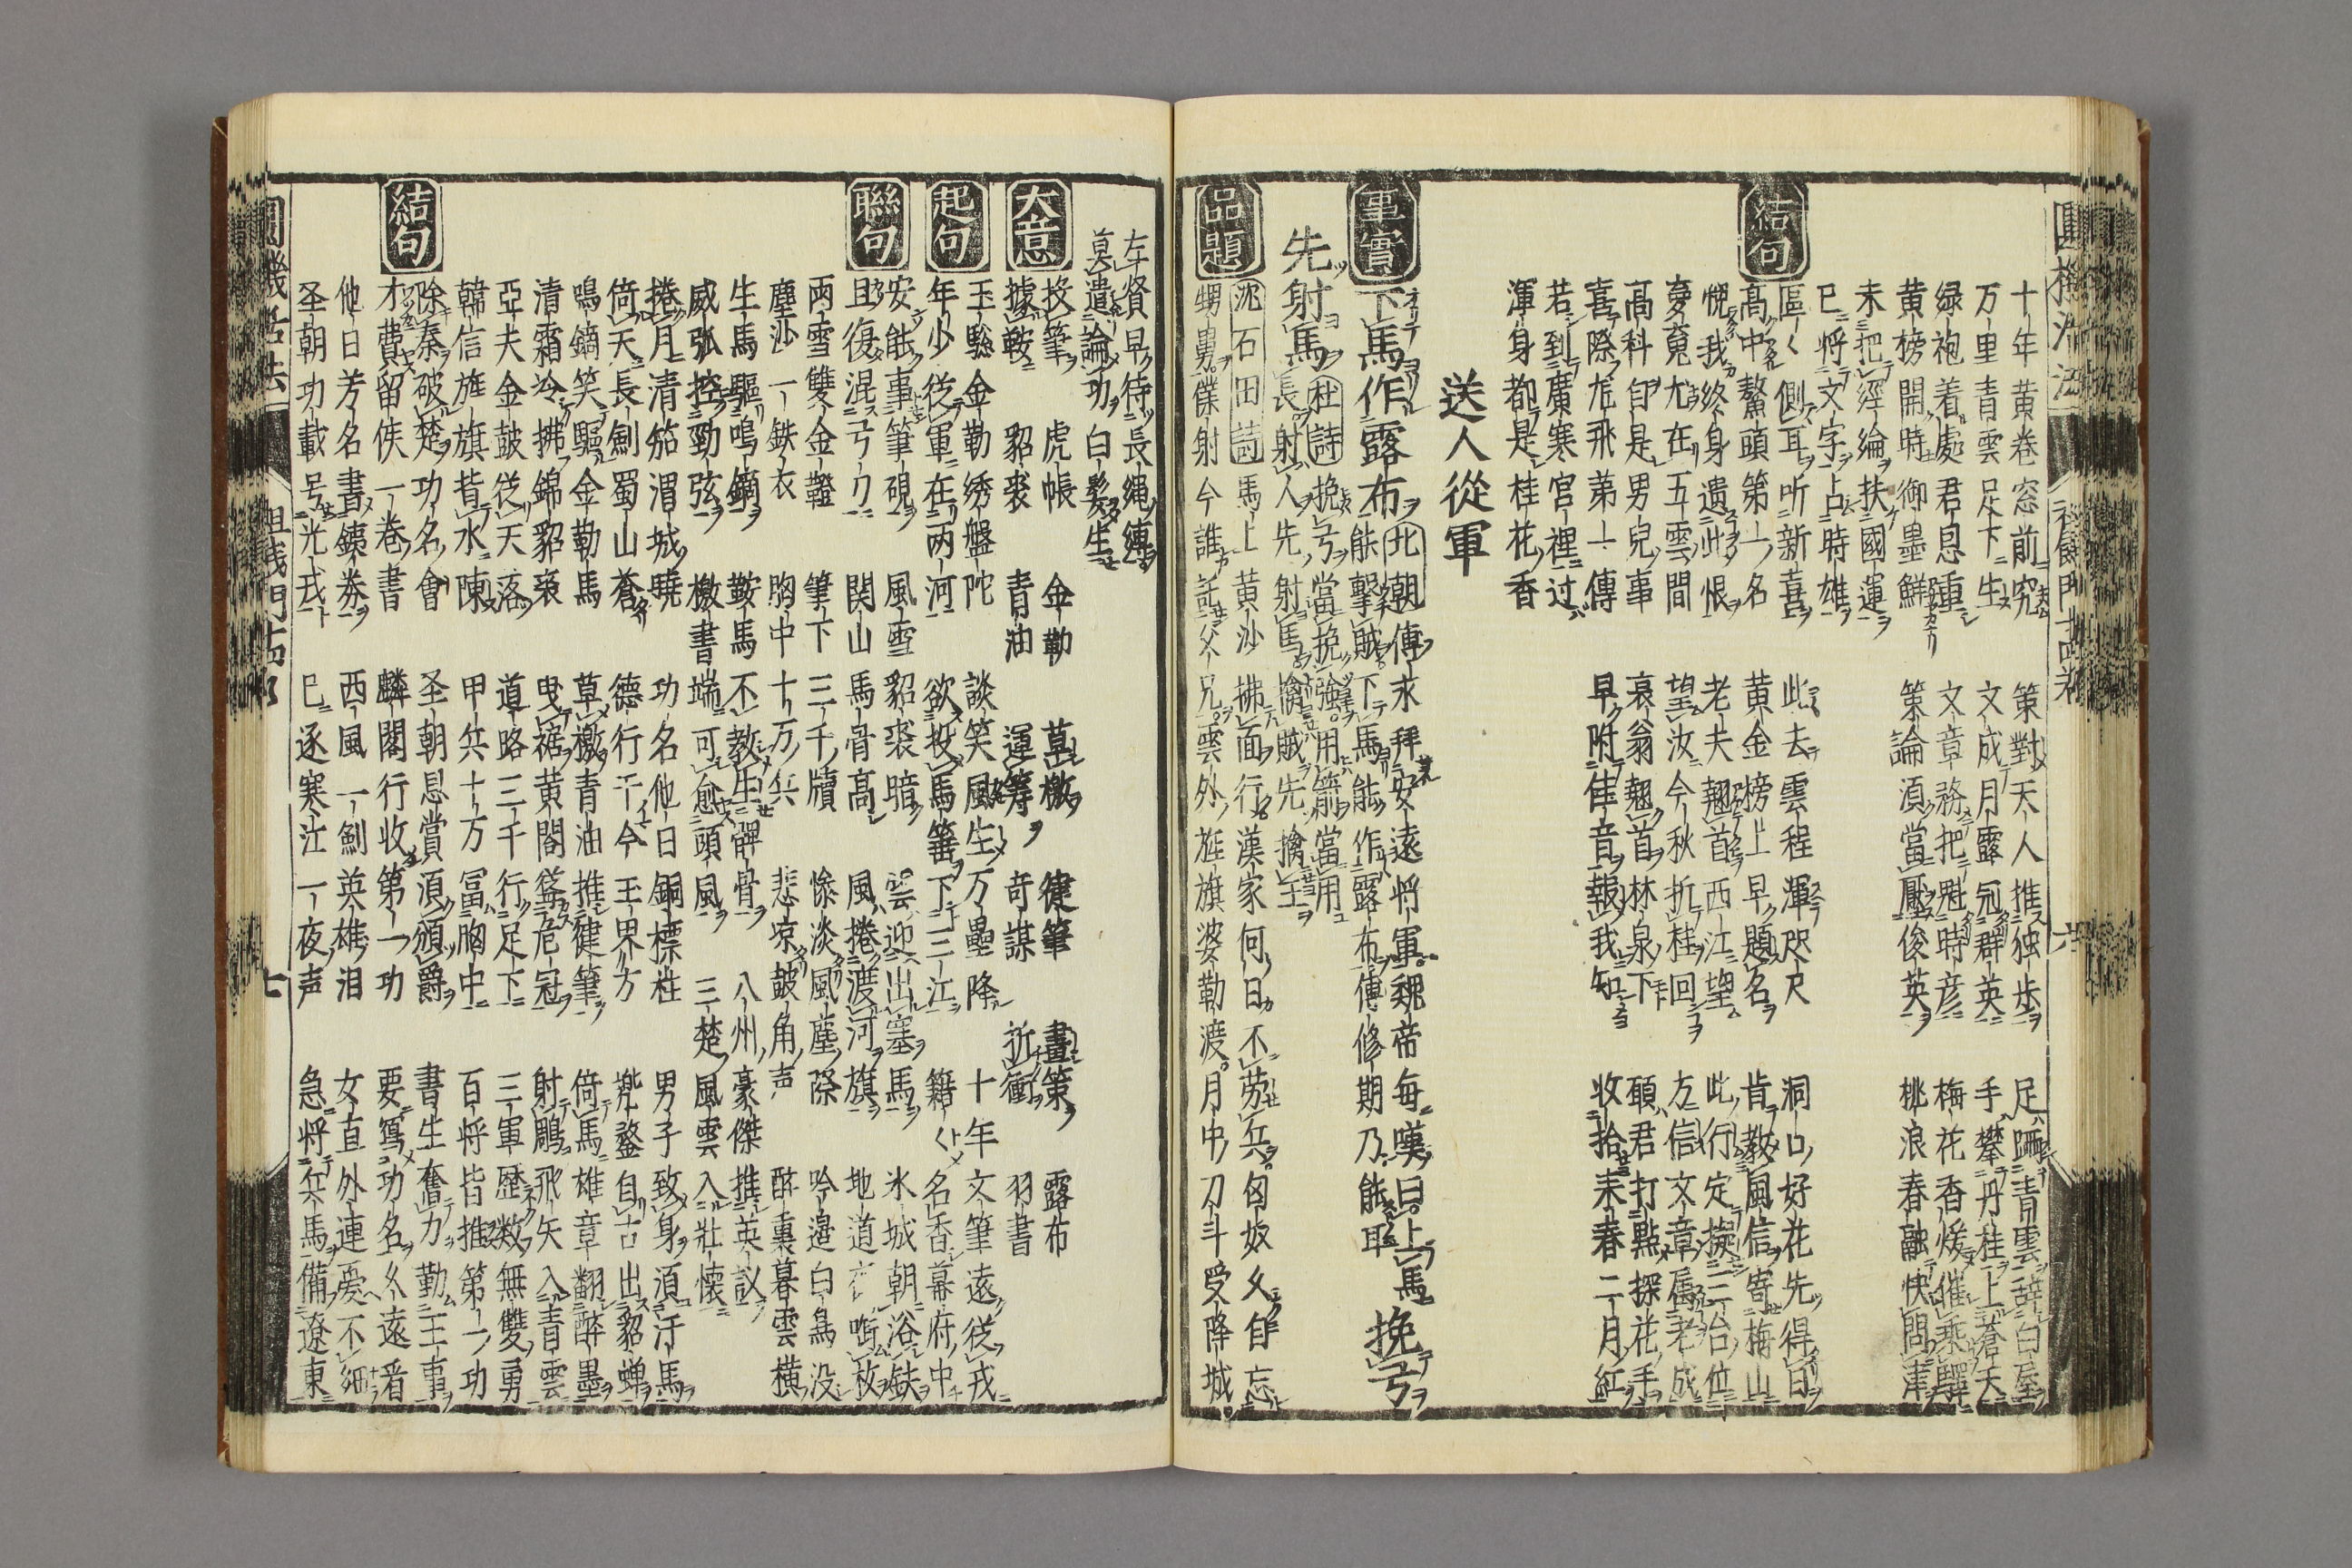 圓機活法
十年黄卷窓前究 策對天人推独歩 足陋青雲辞白屋
万里青雲足下生 文成月露冠群英 手攀丹桂上蒼天
緑袍着處君恩重 文章務把魁時彦 梅花香煖催乘驛
黄榜開時御墨鮮 策論湏當壓俊英 桃浪春融快問津
未把經綸扶國運
已将文字占時雄
結句
區〻側耳听新喜 此去雲程渾咫尺 洞口好花先得日
高中鰲頭第一名 黄金榜上早題名 肯教風信寄梅山
我終身遺此恨 老夫翹首西江望 此行定擬三台位
夢在五雲間 望汝今秋折桂回 方信文章属老成
高科自是男兒事 哀翁翹首林泉下 願君打點探花手
喜際飛第一傳 早附佳音報我知 收拾来春二月紅
若到廣寒宮裡过
渾身都是桂花香
送人從軍
事實
下馬作露布 北朝 傳永拜安遠将軍魏帝毎嘆曰上馬
能撃賊下馬能作露布傅修期乃能耳 挽弓
先射馬 杜詩 挽弓當挽強用箭當用
長射人先射馬擒賊先擒王
品題
沈石田詩 馬上黄沙拂面行漢家何日不労兵匈奴久自忘
甥舅僕射今誰託父兄雲外旌旗婆勒渡月中刀斗受降城
左賢早待長縄縛
莫遣論功白髪生
大意
投筆 虎帳 金勒 草檄 健筆 畫策 露布
據鞍 貂裘 青油 運籌 奇謀 折衝 羽書
起句
玉驄金勒綉盤陀 談笑風生万壘降 十年文筆遠從戎
年少從軍在两河 欲投馬箠下三江 籍〻名香幕府中
聯句
安能事筆硯 風雪貂裘暗 雲迎出塞馬 氷城朝浴鉄
且復混弓刀 関山馬骨高 風捲渡河旗 地道枚
兩雪雙金鐙 筆下三千牘 惨淡風塵際 吟邉白鳥没
塵沙一鉄衣 胸中十万兵 悲凉皷角声 醉裏暮雲横
生馬驅鳴鏑 鞍馬不教生髀骨 八州豪傑推英
威弧控勁弦 檄書端可愈頭風 三楚風雲入壯懐
捲月清笳渭城暁 功名他日銅標柱 男子致身湏汗馬
倚天長劍蜀山蒼 德行千今玉界方 兠鍪自古出貂蝉
鳴鏑笑驅金勒馬 草檄青油推健筆 倚馬雄章翻醉墨
清霜冷拂錦貂裘 曳裾黄閤危冠 射鵰飛矢入青雲
亞夫金皷從天落 道路三千行足下 三軍歴数無雙勇
韓信旌旗背水陳 甲兵十万冨胸中 百将皆推第一功
除秦破楚功名會 圣朝恩賞湏頒爵 書生奮力勤王事
才費留侯一巻書 麟閣行收第一功 要冩功名久遠看
結句
他日芳名書銕券 西風一劍英雄泪 女直外連爱不細
圣朝功載号光戎 已逐寒江一夜声 急将兵馬備遼東
圓機活法
七